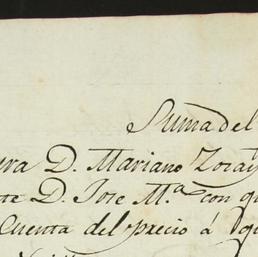 Suma del
era D. Mariano Zoray
te D. Jose M.ª con qu
Cuenta del precio á que